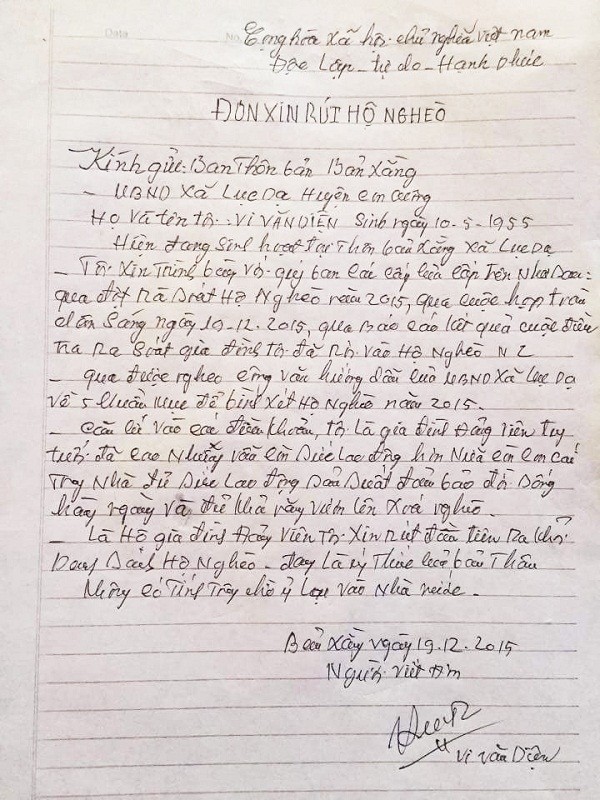 Cộng hòa xã hội chủ nghĩa việt nam
Độc Lập - tự do - Hạnh phúc
ĐƠN XIN RÚT HỘ NGHÈO
Kính gửi: Ban Thôn bản Bản Xằng
- UBND Xã Lục Dạ Huyện con cuông
Họ và tên tôi: VI VĂN DIỆN Sinh ngày 10-5-1955
Hiện đang Sinh hoạt tại Thôn bản Xằng Xã Lục Dạ
- Tôi Xin Trình bày với quý ban các cấp
qua đợt Rà Soát Hộ Nghèo năm 2015, qua cuộc họp
dân Sáng ngày 19-12.2015, qua Báo cáo kết quả cuộc điều
tra Rà Soát gia đình tôi đã Rơi vào Hộ Nghèo N2
- qua được nghe công văn hướng dẫn của UBND Xã Lục Dạ
về 5 chuẩn mục để bình xét Hộ Nghèo năm 2015.
- Căn cứ vào các điều khoản, tôi là gia đình Đảng viên tuy
tuổi đã cao Nhưng vẫn còn Sức Lao động hơn Nữa con em cái
Trong Nhà đủ Sức Lao động Sản Suất đảm bảo đời Sống
hàng ngày và đủ khả năng vươn lên Xoá nghèo.
- Là Hộ gia đình Đảng Viên Tôi Xin Rút đầu tiên Ra khỏi
Danh Sách Hộ Nghèo - đây Là ý Thức của bản Thân
không có Tính Trông chờ ỷ Lại vào Nhà nước.
Bản Xằng ngày 19.12.2015
Người viết đơn
Vi văn Diện